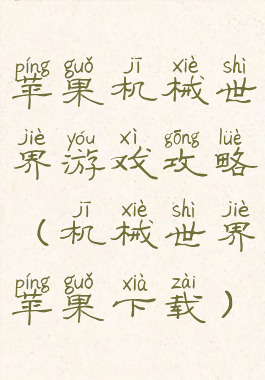 píng guǒ jī xiè shì
苹果机械世
jiè yóu xì gōng lüè
界游戏攻略
jī xiè shì jiè
（机械世界
píng guǒ xià zài
苹果下载）